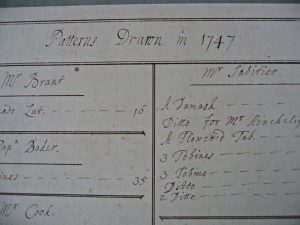 Patterns Drawn in 1747
Mr Brant
Lut. 16
Capn Baker.
ines 35
Mr Cook.
Mr Sabitier.
A Damask
Ditto. for Mr
A Flowerd Tab.
3 Tobines
3 Tobine
Ditto
2 Ditto